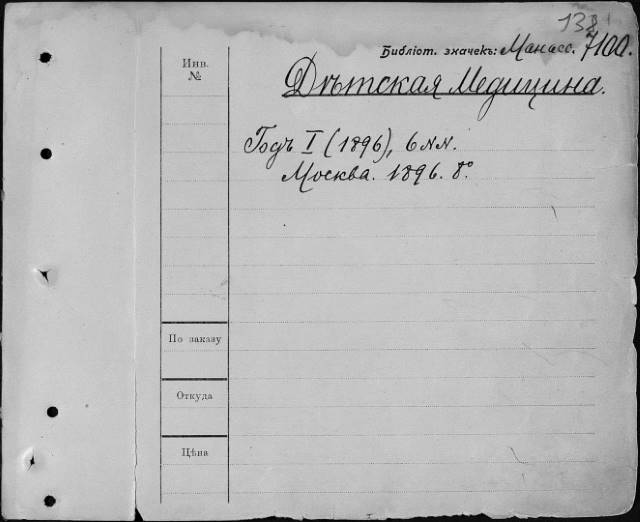 138
Библіот. значекъ: Манасс. 7100.
Инв.
№
Дѣтская Медицина.
Годъ I (1896), 6 NN.
Москва. 1896. 8°
По заказу
Откуда
Цѣна